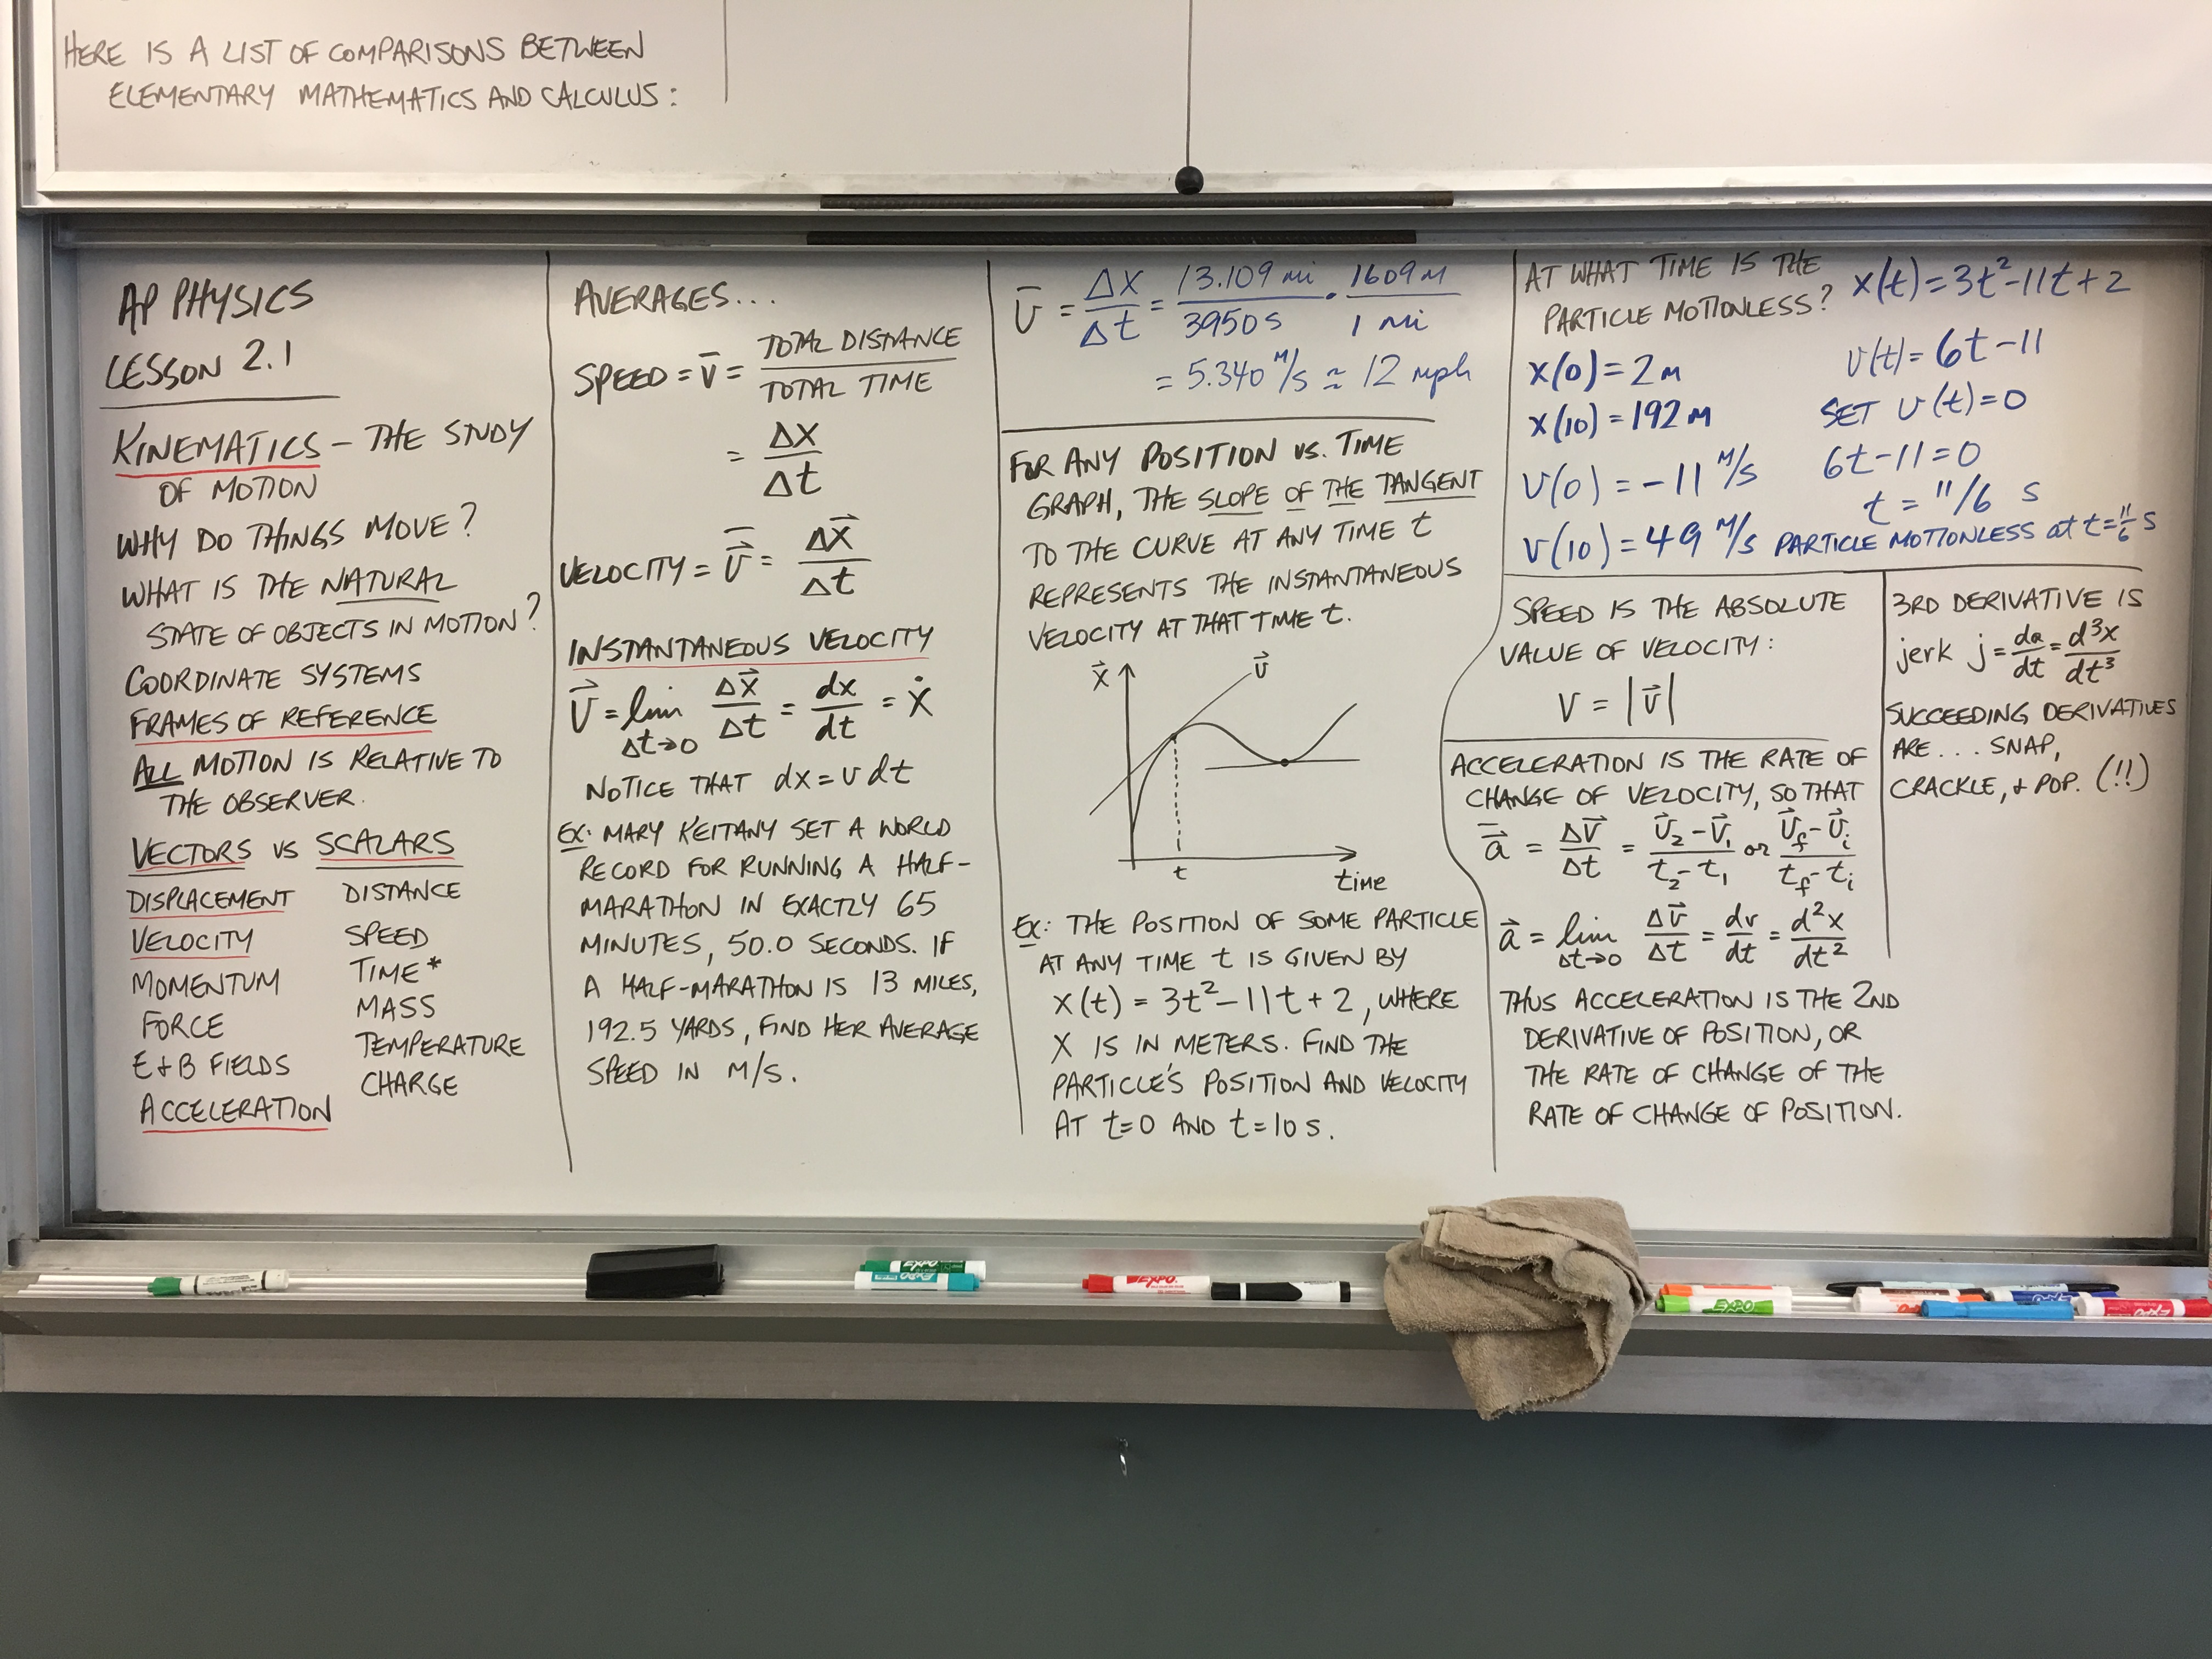 HERE IS A LIST OF COMPARISONS BETWEEN
ELEMENTARY MATHEMATICS AND CALCULUS:
AP PHYSICS
LESSON 2.1
KINEMATICS – THE STUDY
OF MOTION
WHY DO THINGS MOVE?
WHAT IS THE NATURAL
STATE OF OBJECTS IN MOTION?
COORDINATE SYSTEMS
FRAMES OF REFERENCE
ALL MOTION IS RELATIVE TO
THE OBSERVER.
VECTORS VS SCALARS
DISPLACEMENT DISTANCE
VELOCITY SPEED
MOMENTUM TIME*
FORCE MASS
E+B FIELDS TEMPERATURE
ACCELERATION CHARGE
AVERAGES...
SPEED = v̄ = TOTAL DISTANCE / TOTAL TIME
= Δx / Δt
VELOCITY = v⃗̄ = Δx⃗ / Δt
INSTANTANEOUS VELOCITY
v⃗ = lim Δt→0 Δx⃗/Δt = dx/dt = ẋ
NOTICE THAT dx = v dt
EX: MARY KEITANY SET A WORLD
RECORD FOR RUNNING A HALF-
MARATHON IN EXACTLY 65
MINUTES, 50.0 SECONDS. IF
A HALF-MARATHON IS 13 MILES,
192.5 YARDS, FIND HER AVERAGE
SPEED IN M/S.
v̄ = Δx/Δt = 13.109 mi / 3950 s · 1609 M / 1 mi
= 5.340 M/S ≈ 12 mph
FOR ANY POSITION VS. TIME
GRAPH, THE SLOPE OF THE TANGENT
TO THE CURVE AT ANY TIME t
REPRESENTS THE INSTANTANEOUS
VELOCITY AT THAT TIME t.
x⃗ v⃗
t
time
EX: THE POSITION OF SOME PARTICLE
AT ANY TIME t IS GIVEN BY
x(t) = 3t² – 11t + 2, WHERE
X IS IN METERS. FIND THE
PARTICLE'S POSITION AND VELOCITY
AT t=0 AND t=10 s.
AT WHAT TIME IS THE
PARTICLE MOTIONLESS?
x(0) = 2 M
x(10) = 192 M
v(0) = –11 M/S
v(10) = 49 M/S
x(t) = 3t² – 11t + 2
v(t) = 6t – 11
SET v(t) = 0
6t – 11 = 0
t = 11/6 s
PARTICLE MOTIONLESS at t = 11/6 s
SPEED IS THE ABSOLUTE
VALUE OF VELOCITY:
V = |v⃗|
ACCELERATION IS THE RATE OF
CHANGE OF VELOCITY, SO THAT
a⃗̄ = Δv⃗/Δt = (v⃗₂ – v⃗₁)/(t₂ – t₁) or (v⃗f – v⃗i)/(tf – ti)
a⃗ = lim Δt→0 Δv⃗/Δt = dv/dt = d²x/dt²
THUS ACCELERATION IS THE 2ND
DERIVATIVE OF POSITION, OR
THE RATE OF CHANGE OF THE
RATE OF CHANGE OF POSITION.
3RD DERIVATIVE IS
jerk j = da/dt = d³x/dt³
SUCCEEDING DERIVATIVES
ARE... SNAP,
CRACKLE, + POP. (!!)
EXPO
EXPO
EXPO
EXPO